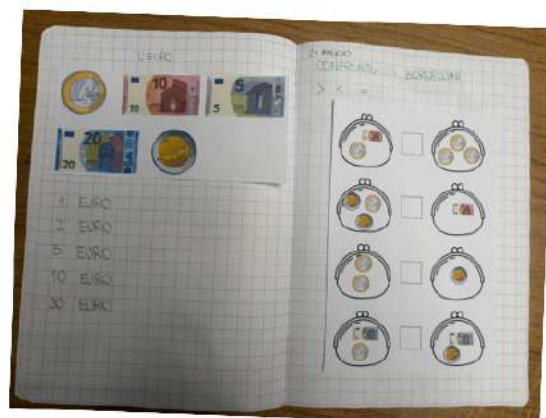 L'EURO
10
10
5
5
20
20
1 EURO
2 EURO
5 EURO
10 EURO
20 EURO
CONFRONTO I BORSELLINI
> < =